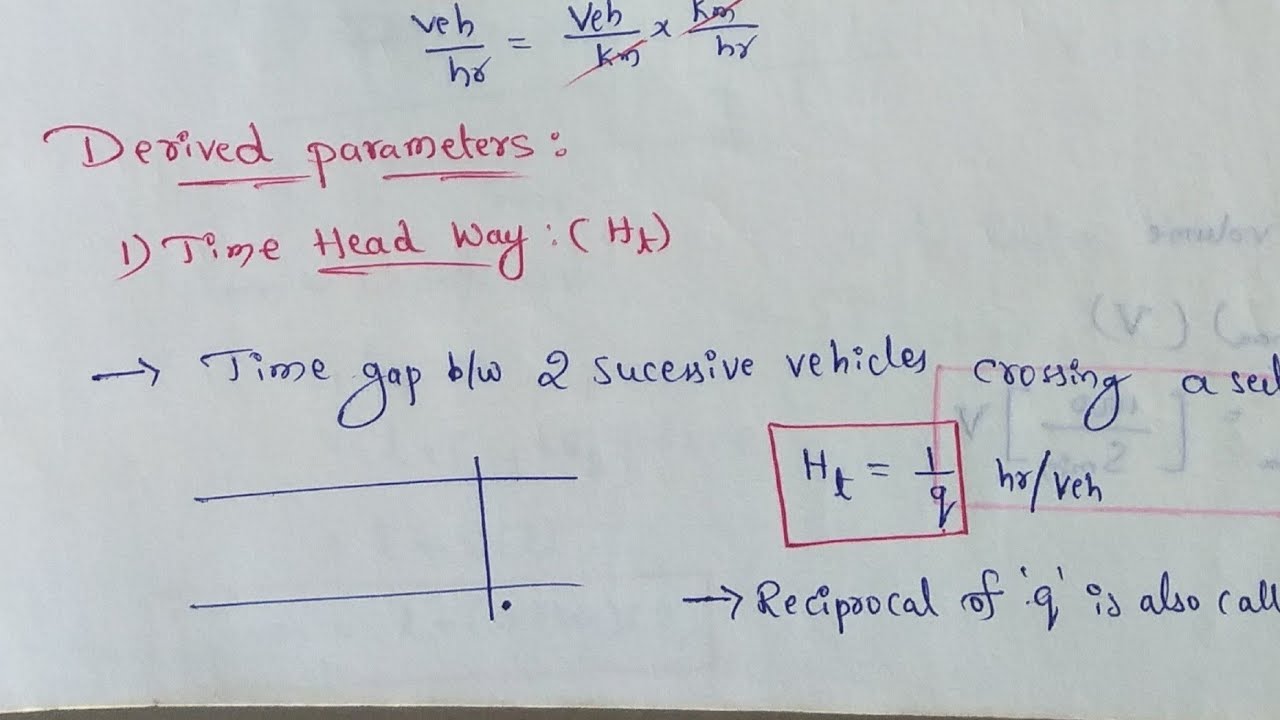 veh/hr = Veh/km x km/hr
Derived parameters:
1) Time Head Way: (Ht)
→ Time gap b/w 2 sucessive vehicles crossing a
Ht = 1/q hr/veh
→ Reciprocal of 'q' is also call
volume
(V)